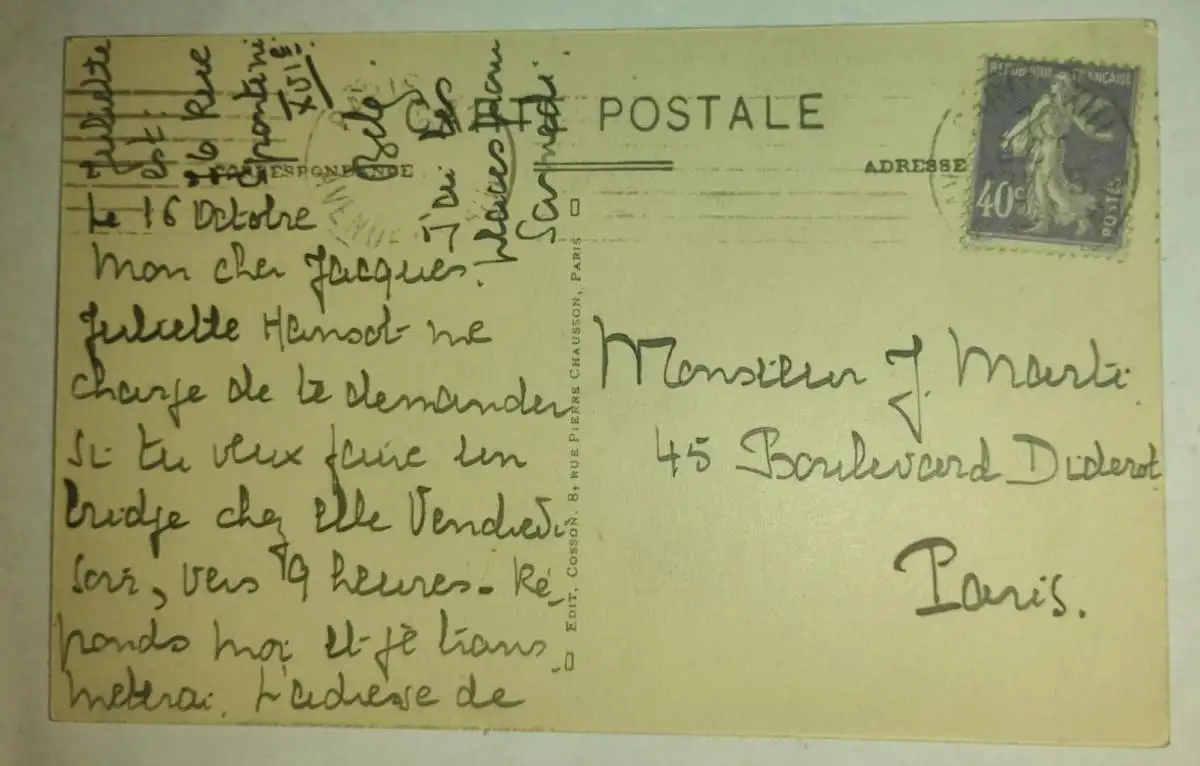 CARTE POSTALE
CORRESPONDANCE
ADRESSE
RÉPUBLIQUE FRANÇAISE
40c
POSTES
Le 16 Octobre
Mon cher Jacques.
Juliette Hansot me
charge de te demander
si tu veux faire un
bridge chez elle Vendredi
soir, vers 9 heures. Ré-
ponds moi et je trans-
mettrai. L'adresse de
Juliette
est:
76 Rue
Spontini
XVIe.
J'ai les
places pour
Samedi.
EDIT. COSSON. 8, RUE PIERRE CHAUSSON, PARIS
Monsieur J. Marti
45 Boulevard Diderot
Paris.